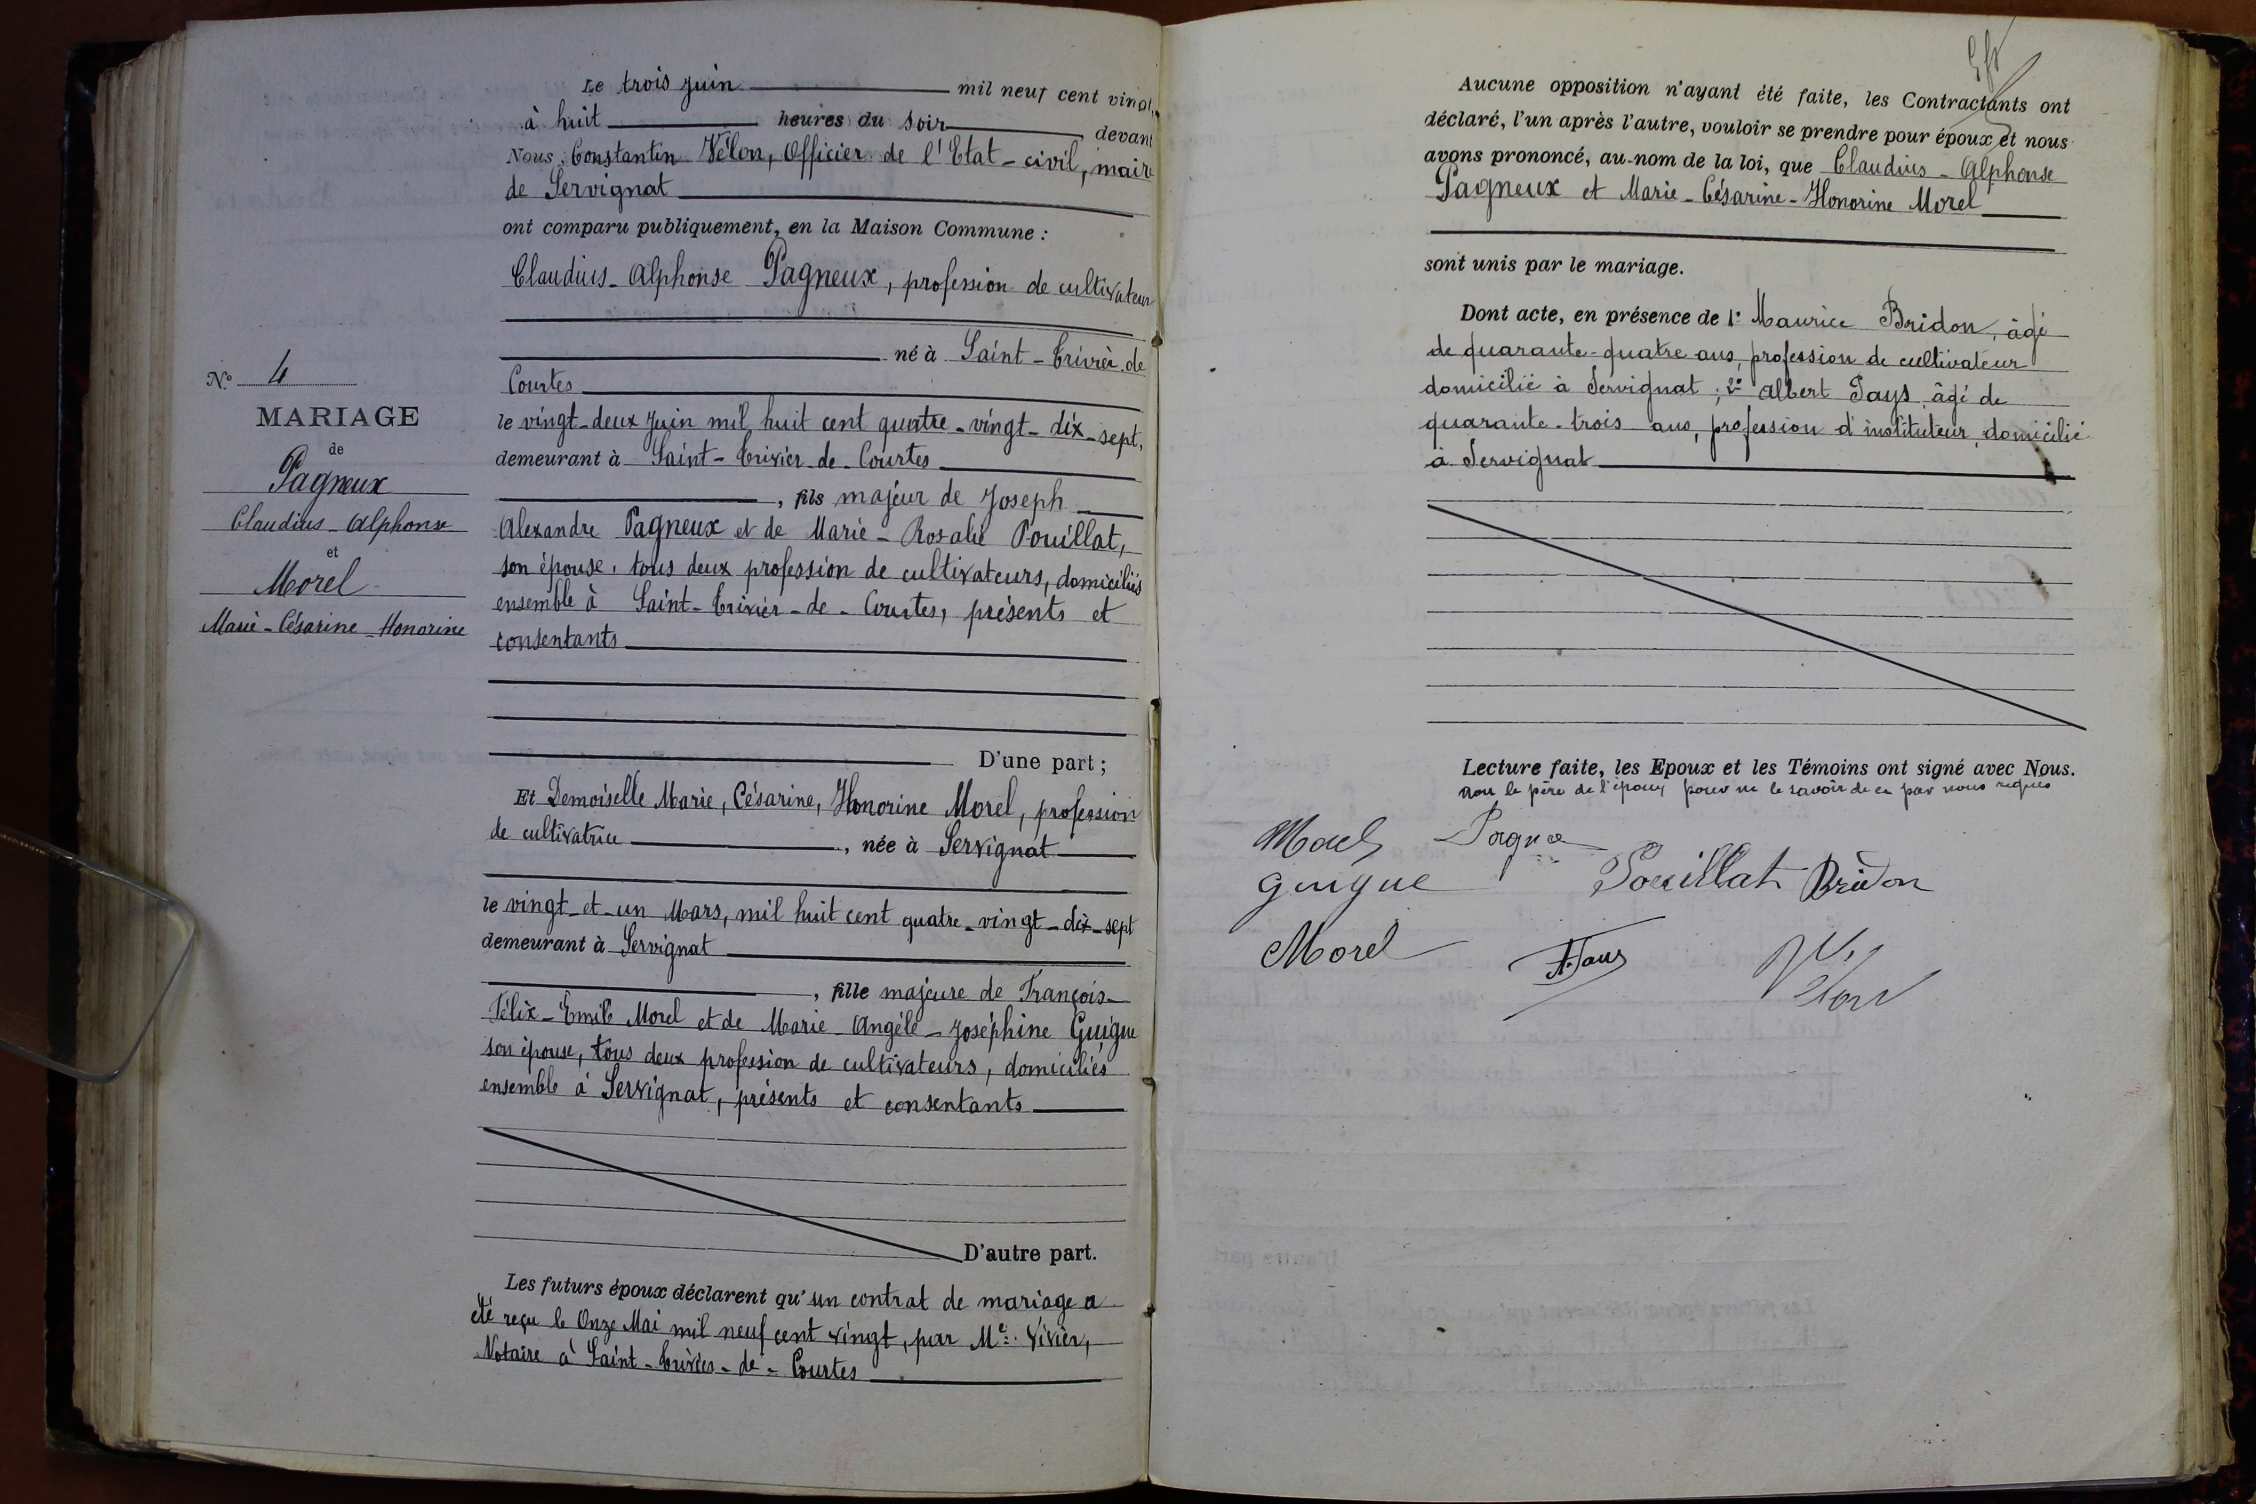 Le trois Juin mil neuf cent vingt,
à huit heures du soir devant
Nous, Constantin Vélon, Officier de l'Etat-civil, maire
de Servignat
ont comparu publiquement, en la Maison Commune :
Claudius-Alphonse Pagneux, profession de cultivateur
né à Saint-Trivier-de
Courtes
le vingt-deux Juin mil huit cent quatre-vingt-dix-sept,
demeurant à Saint-Trivier-de-Courtes
, fils majeur de Joseph
Alexandre Pagneux et de Marie-Rosalie Pouillat,
son épouse, tous deux profession de cultivateurs, domiciliés
ensemble à Saint-Trivier-de-Courtes, présents et
consentants
D'une part ;
Et Demoiselle Marie, Césarine, Honorine Morel, profession
de cultivatrice, née à Servignat
le vingt-et-un Mars, mil huit cent quatre-vingt-dix-sept
demeurant à Servignat
, fille majeure de François-
Félix-Emile Morel et de Marie-Angèle-Joséphine Guigue
son épouse, tous deux profession de cultivateurs, domiciliés
ensemble à Servignat, présents et consentants
D'autre part.
Les futurs époux déclarent qu'un contrat de mariage a
été reçu le Onze Mai mil neuf cent vingt, par Me Vivier,
Notaire à Saint-Trivier-de-Courtes
No 4
MARIAGE
de
Pagneux
Claudius-Alphonse
et
Morel
Marie-Césarine-Honorine
Aucune opposition n'ayant été faite, les Contractants ont
déclaré, l'un après l'autre, vouloir se prendre pour époux et nous
avons prononcé, au nom de la loi, que Claudius-Alphonse
Pagneux et Marie-Césarine-Honorine Morel
sont unis par le mariage.
Dont acte, en présence de 1° Maurice Bridon, âgé
de quarante-quatre ans, profession de cultivateur
domicilié à Servignat ; 2° Albert Pays, âgé de
quarante-trois ans, profession d'instituteur, domicilié
à Servignat
Lecture faite, les Epoux et les Témoins ont signé avec Nous.
non le père de l'époux pour ne le savoir de ce par nous requis
Morel
Guigue Pouillat Bridon
Morel